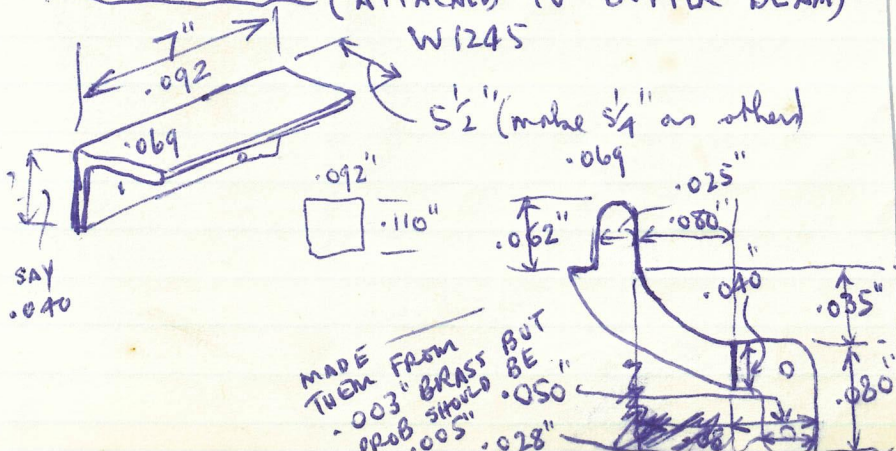 (ATTACHED TO BUFFER BEAM)
W1245
7"
.092
5½" (make 5¼" as others)
.069
.069
.092"
.110"
SAY
.040
.025"
.080"
.062"
.040"
.035"
.080"
MADE
THEM FROM
.003" BRASS BUT
PROB SHOULD BE
.005"
.050"
.028"